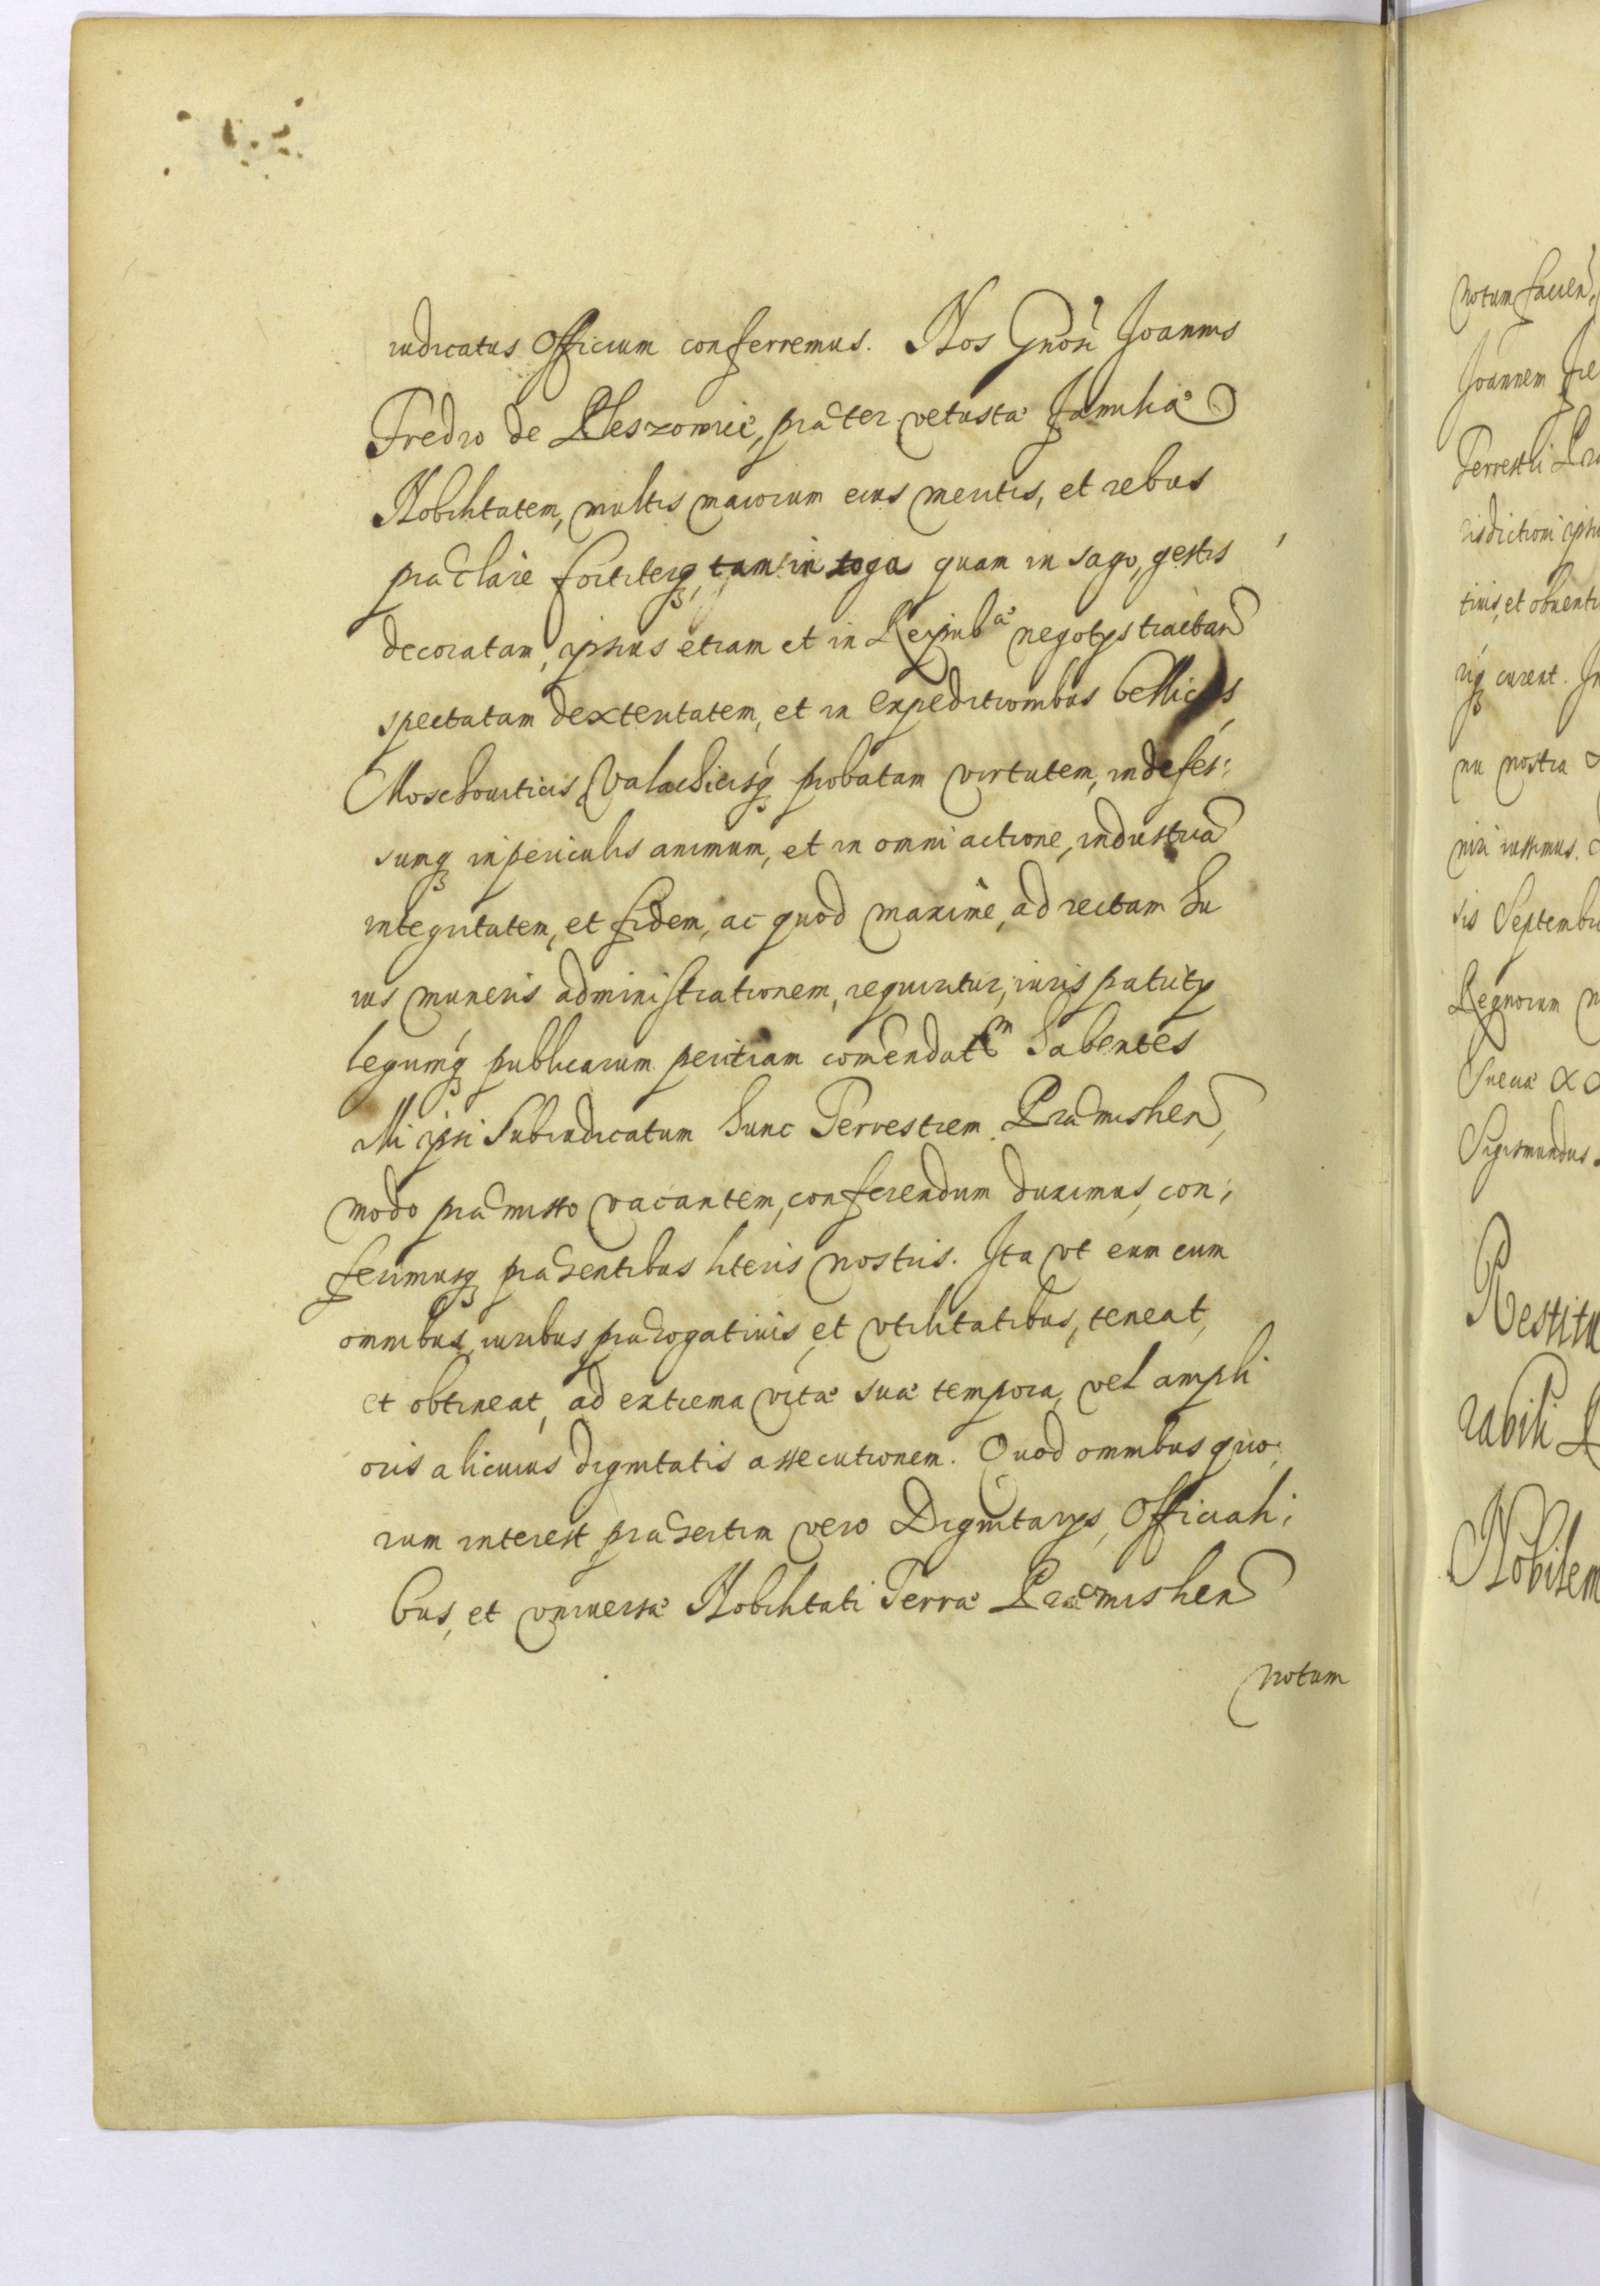 iudicatus Officium conferremus. Nos Gnosi Joannis
Fredro de Pleszowic, præter vetustæ familiæ
Nobilitatem, multis maiorum eius meritis, et rebus
præclare fortiterq, tam in toga quam in sago, gestis
decoratam, ipsius etiam et in Reipub^æ negotys tractan
spectatam dexteritatem, et in expeditionibus bellicis,
Moschouiticis Valachicisq probatam virtutem, indefes:
sumq in periculis animum, et in omni actione, industria
integritatem, et fidem, ac quod maxime, ad rectam hu
ius muneris administrationem, requiritur, iuris patrity
legumq publicarum peritiam comendat^m habentes
illi ipsi Subiudicatum hunc Terrestrem Præmislien,
modo præmisso vacantem, conferendum duximus, con:
ferimusq præsentibus literis nostris. Ita vt eum cum
omnibus iuribus prærogatiuis, et vtilitatibus, teneat,
et obtineat, ad extrema vitæ suæ tempora, vel ampli
oris alicuius dignitatis assecutionem. Quod omnibus quo:
rum interest præsertim vero Dignitarys, Officiali:
bus, et vniuersæ Nobilitati Terræ Præmislien
notum
notum facien,
Joannem Fre
Terrestri Præ
risdictioni ipsiu
tiuis, et obuenti
riq curent. In
nu nostra
niri iussimus.
sis Septembri
Regnorum n
Sueciæ
Sigismundus
Restitu
rabili
Nobilem